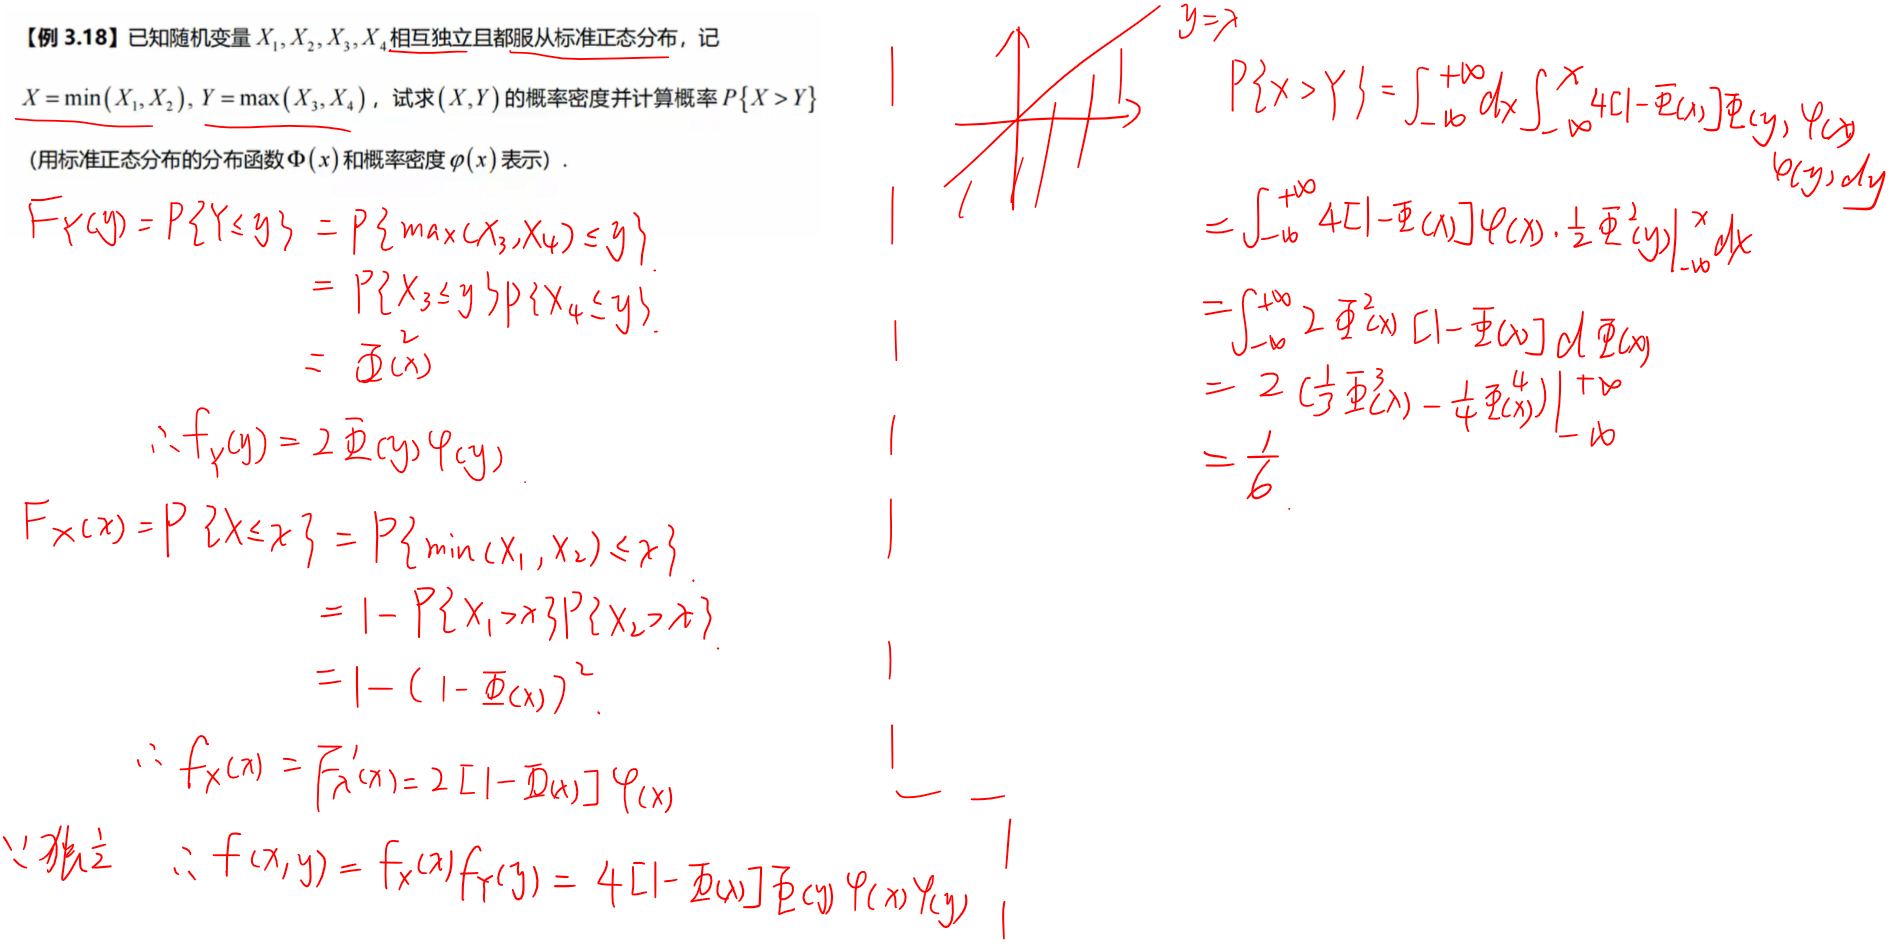 【例 3.18】已知随机变量 X₁, X₂, X₃, X₄ 相互独立且都服从标准正态分布，记
X = min(X₁, X₂), Y = max(X₃, X₄)，试求(X,Y)的概率密度并计算概率 P{X > Y}
(用标准正态分布的分布函数Φ(x)和概率密度φ(x)表示）.
F_Y(y) = P{Y ≤ y} = P{max(X₃, X₄) ≤ y}
= P{X₃ ≤ y}P{X₄ ≤ y}.
= Φ²(x)
∴ f_Y(y) = 2Φ(y)φ(y).
F_X(x) = P{X ≤ x} = P{min(X₁, X₂) ≤ x}.
= 1 - P{X₁ > x}P{X₂ > x}.
= 1 - (1 - Φ(x))².
∴ f_X(x) = F_X'(x) = 2[1 - Φ(x)]φ(x)
∵ 独立 ∴ f(x, y) = f_X(x)f_Y(y) = 4[1 - Φ(x)]Φ(y)φ(x)φ(y)
y = x
P{X > Y} = ∫_{-∞}^{+∞} dx ∫_{-∞}^{x} 4[1 - Φ(x)]Φ(y)φ(x)
φ(y)dy
= ∫_{-∞}^{+∞} 4[1 - Φ(x)]φ(x) · ½Φ²(y)|_{-∞}^{x} dx
= ∫_{-∞}^{+∞} 2Φ²(x)[1 - Φ(x)]dΦ(x)
= 2(⅓Φ³(x) - ¼Φ⁴(x))|_{-∞}^{+∞}
= 1/6.